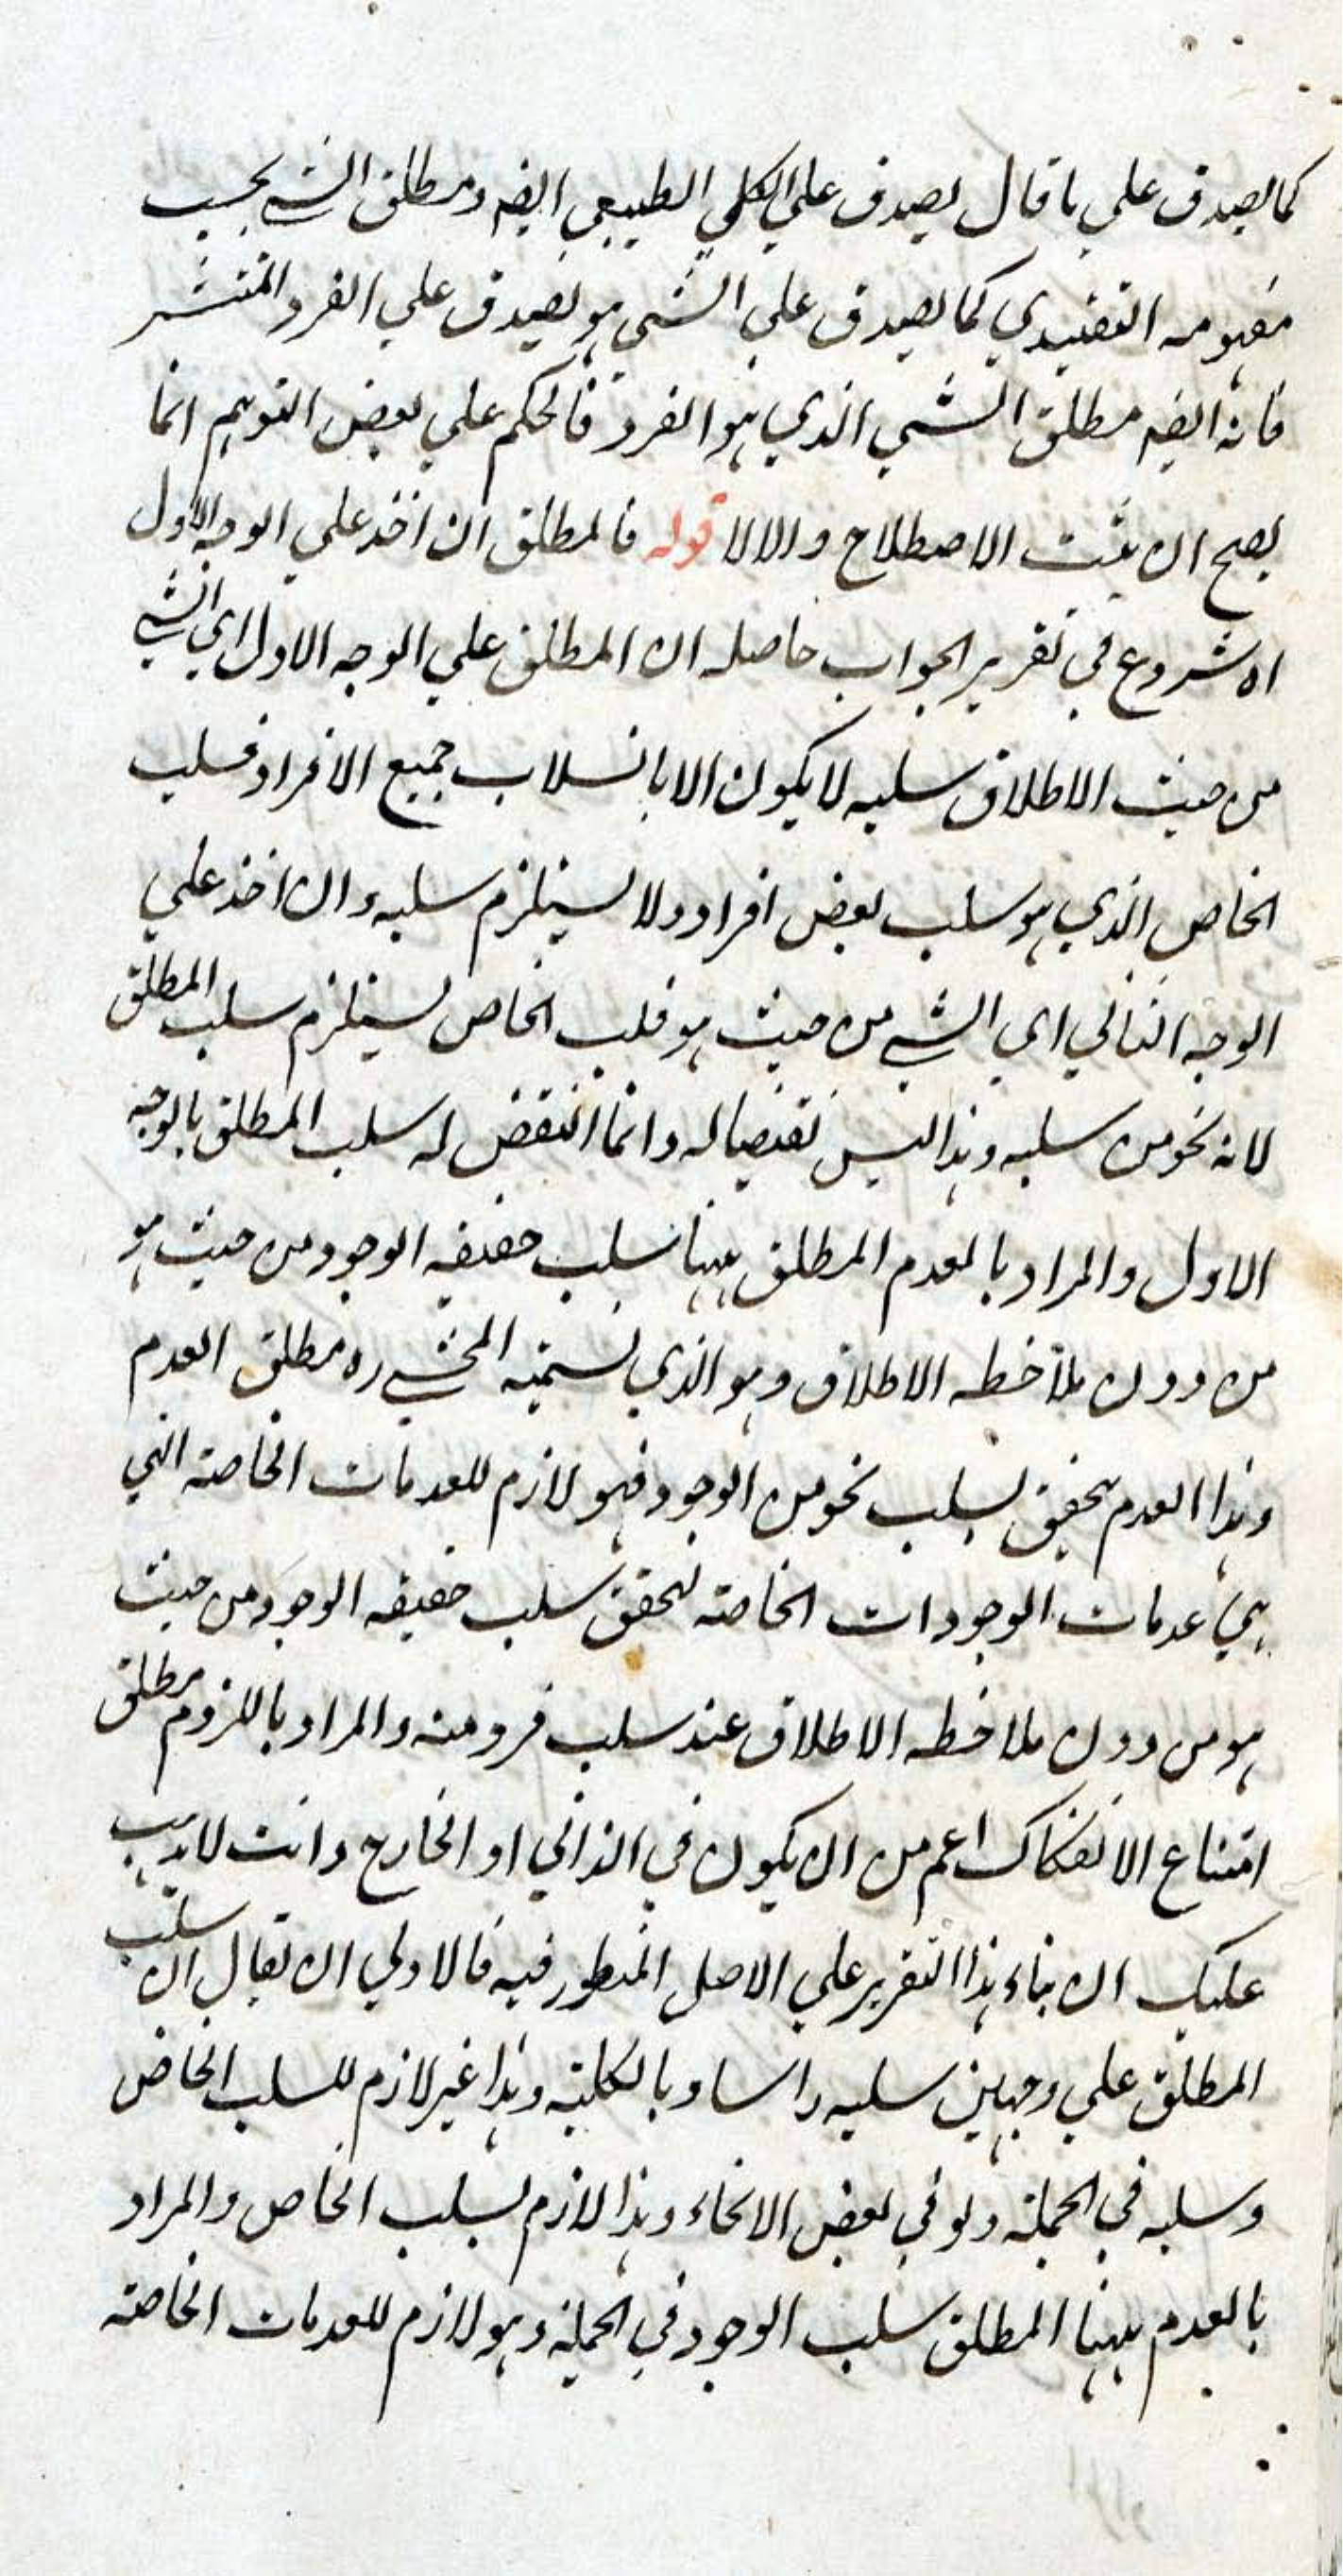 كما يصدق على ما قال يصدق على الكلي الطبيعي ايضه ومطلق الشي بحسب
مفهومه التقييدي كما يصدق على الشي هو يصدق على الفرد المنتشر
فانه ايضه مطلق الشي الذي هو الفرد فالحكم على بعض التوهم انما
يصح ان يثبت الاصطلاح والا لا قوله فالمطلق ان اخذ على الوجه الاول
اه شروع في تقرير الجواب حاصله ان المطلق على الوجه الاول اي الشي
من حيث الاطلاق سلبه لا يكون الا بانسلاب جميع الافراد فسلب
الخاص الذي هو سلب بعض افراده لا يستلزم سلبه وان اخذ على
الوجه الثاني اي الشي من حيث هو فلب الخاص يستلزم سلب المطلق
لانه نحو من سلبه وهذا ليس نقيضا له وانما النقض له سلب المطلق بالوجه
الاول والمراد بالعدم المطلق ههنا سلب حقيقه الوجود من حيث هو
من دون ملاحظه الاطلاق وهو الذي يسميه المحشي ره مطلق العدم
وهذا العدم يتحقق بسلب نحو من الوجود فهو لازم للعدمات الخاصة التي
هي عدمات الوجودات الخاصة لتحقق سلب حقيقه الوجود من حيث
هو من دون ملاحظه الاطلاق عند سلب فرد منه والمراد باللزوم مطلق
امتناع الانفكاك اعم من ان يكون في الذاتي او الخارج وانت لا يذهب
عليك ان بناء هذا التقرير على الاصل المنظور فيه فالاولى ان يقال ان سلب
المطلق على وجهين سلبه راسا وبالكلية وهذا غير لازم للسلب الخاص
وسلبه في الجملة ولو في بعض الانحاء وهذا لازم لسلب الخاص والمراد
بالعدم ههنا المطلق سلب الوجود في الجملة وهو لازم للعدمات الخاصة